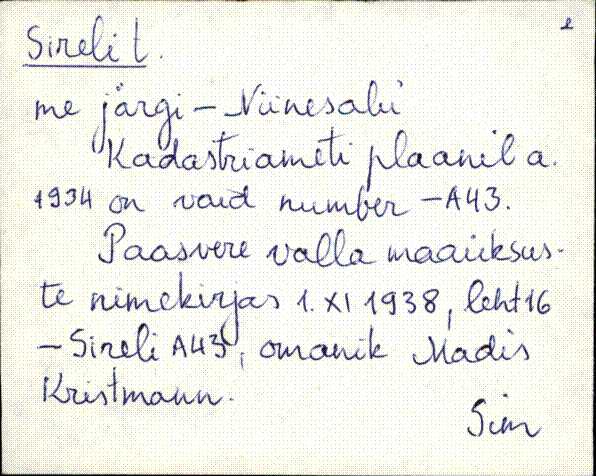 2
Sireli t.
me järgi – Niinesalu
Kadastriameti plaanil a.
1934 on vaid number – A43.
Paasvere valla maaüksus-
te nimekirjas 1. XI 1938, leht 16
– Sireli A43, omanik Madis
Kristmann.
Sim